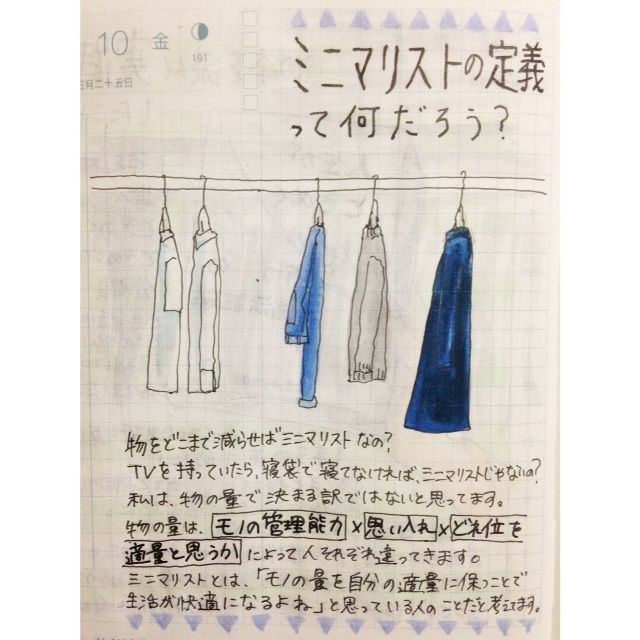 10 金
191
五月二十五日
ミニマリストの定義
って何だろう?
物をどこまで減らせばミニマリストなの?
TVを持っていたら、寝袋で寝てなければ、ミニマリストじゃないの?
私は、物の量で決まる訳ではないと思ってます。
物の量は、モノの管理能力×思い入れ×どれ位を
適量と思うかによって人それぞれ違ってきます。
ミニマリストとは、「モノの量を自分の適量に保つことで
生活が快適になるよね」と思っている人のことだと考えてます。